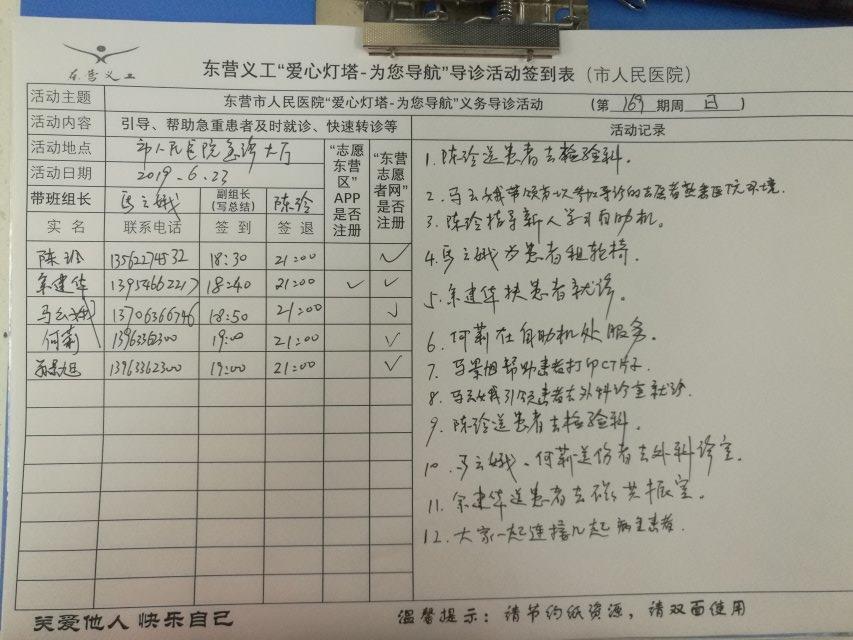 东营义工
东营义工“爱心灯塔-为您导航”导诊活动签到表（市人民医院）
活动主题 东营市人民医院“爱心灯塔-为您导航”义务导诊活动 （第 169 期周 日 ）
活动内容 引导、帮助急重患者及时就诊、快速转诊等
活动地点 市人民医院急诊大厅
活动日期 2019.6.23
带班组长 马云娥 副组长（写总结） 陈玲
“志愿东营区”APP是否注册
“东营志愿者网”是否注册
实 名 联系电话 签 到 签 退
陈玲 13562274532 18:30 21:00 ✓
余建华 13954662217 18:40 21:00 ✓ ✓
马云娥 13706366746 18:50 21:00 ✓
何莉 13963362300 19:00 21:00 ✓
13963362300 19:00 21:00 ✓
活动记录
1.陈玲送患者去检验科.
2.马云娥带领第一次参加导诊的志愿者熟悉医院环境.
3.陈玲指导新人学习自助机。
4.马云娥为患者租轮椅.
5.余建华扶患者就诊。
6.何莉在自助机处服务。
7.帮助患者打印CT片子
8.马云娥引领患者去外科诊室就诊.
9.陈玲送患者去检验科.
10.马云娥、何莉送伤者去外科诊室.
11.余建华送患者去磁共振室。
12.大家一起连接几起病重患者.
关爱他人 快乐自己
温馨提示：请节约纸资源，请双面使用